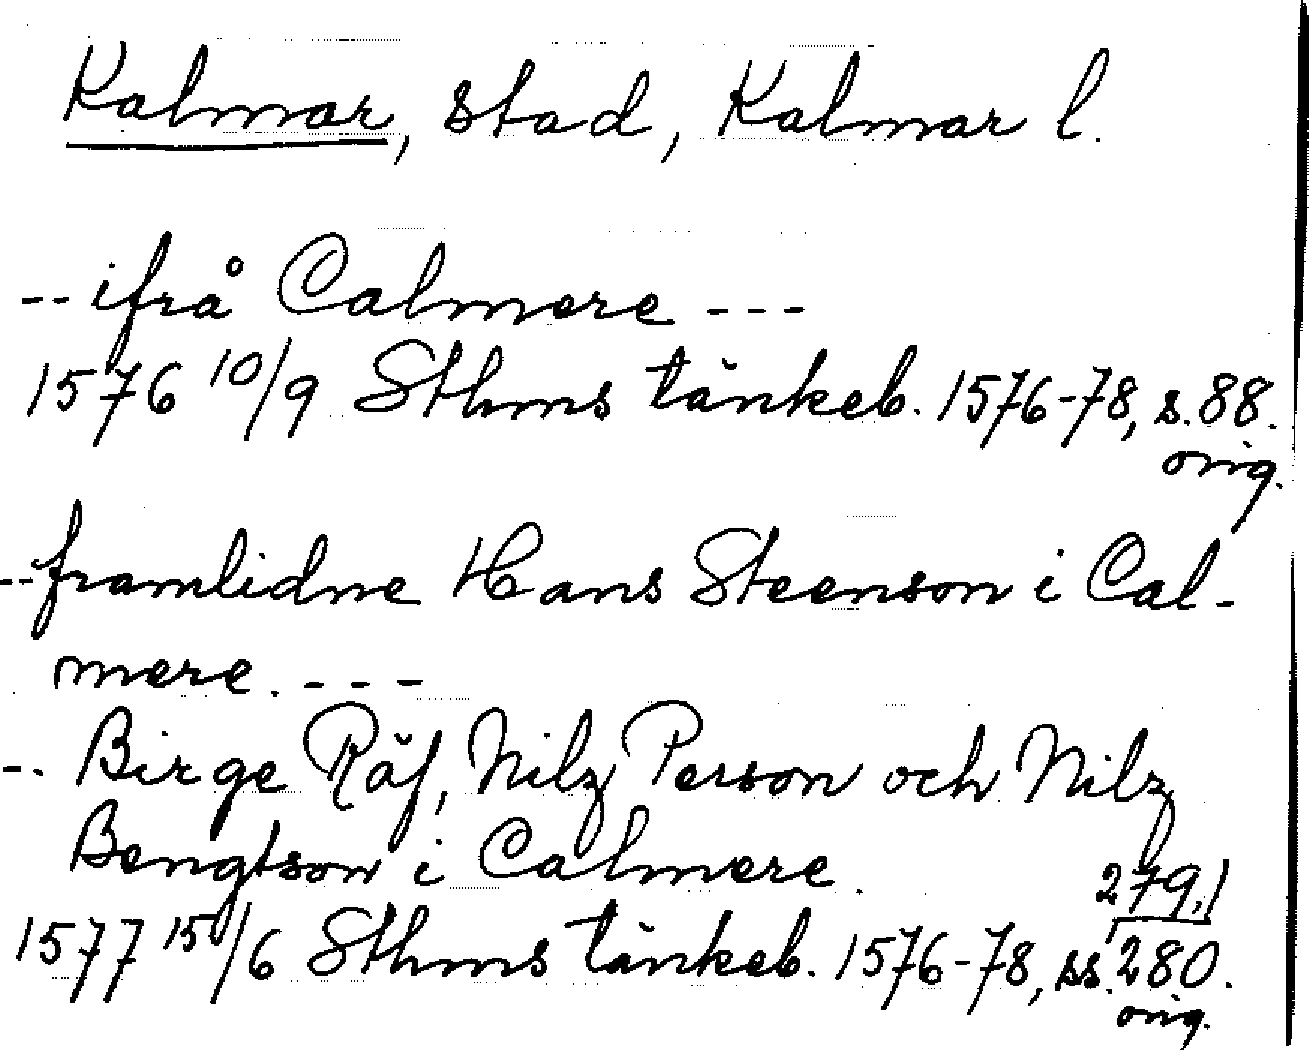 Kalmar, stad, Kalmar l.
-- ifrå Calmere ---
1576 10/9 Sthms tänkeb. 1576-78, s. 88.
orig.
-- framlidne Hans Steenson i Cal-
mere. ---
-- Birge Räf, Nilz Person och Nilz
Bengtson i Calmere.
1577 15/6 Sthms tänkeb. 1576-78, ss. 279, 280.
orig.